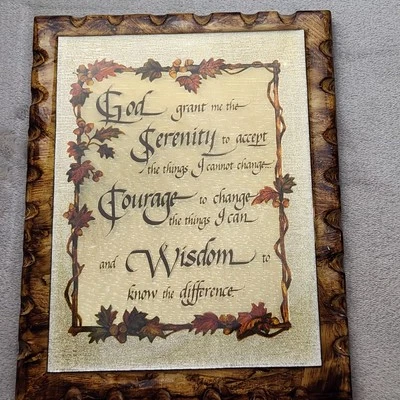 God grant me the
Serenity to accept
the things I cannot change
Courage to change
the things I can
and Wisdom to
know the difference